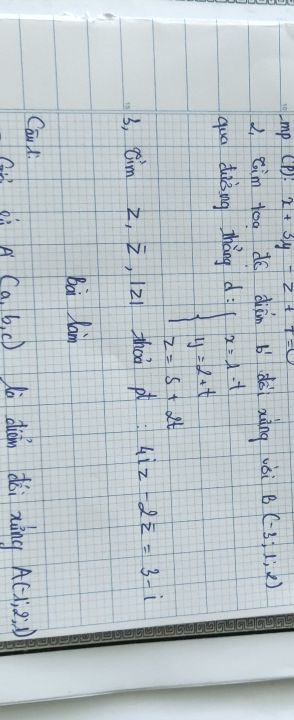 mp (P): x + 3y - z + 7 = 0
2, Tìm toạ độ điểm B' đối xứng với B(-3;1;2)
qua đường thẳng d: { x = 1 - t
y = 2 + t
z = 5 + 2t
3, Tìm z, z̄, |z| thoả pt: 4iz - 2z̄ = 3 - i
Bài làm
Câu 1:
A' (a,b,c) là điểm đối xứng A(-1;2;1)